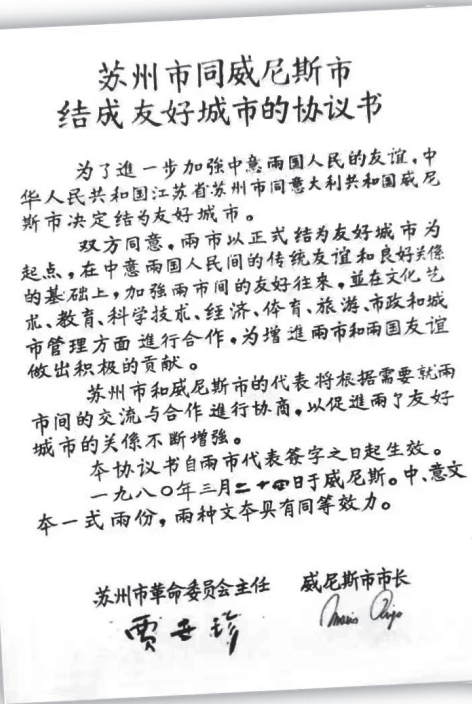 苏州市同威尼斯市
结成友好城市的协议书
为了進一步加強中意兩国人民的友谊，中
华人民共和国江苏省苏州市同意大利共和国威尼
斯市决定结为友好城市。
双方同意，兩市以正式结为友好城市为
起点，在中意兩国人民间的传统友谊和良好关係
的基础上，加強兩市间的友好往来，並在文化艺
术、教育、科学技术、经济、体育、旅游、市政和城
市管理方面進行合作，为增進兩市和兩国友谊
做出积极的贡献。
苏州市和威尼斯市的代表将根据需要就兩
市间的交流与合作進行协商，以促進兩个友好
城市的关係不断增強。
本协议书自兩市代表签字之日起生效。
一九八〇年三月二十四日于威尼斯。中、意文
本一式兩份，兩种文本具有同等效力。
苏州市革命委员会主任 威尼斯市市长
贾世珍